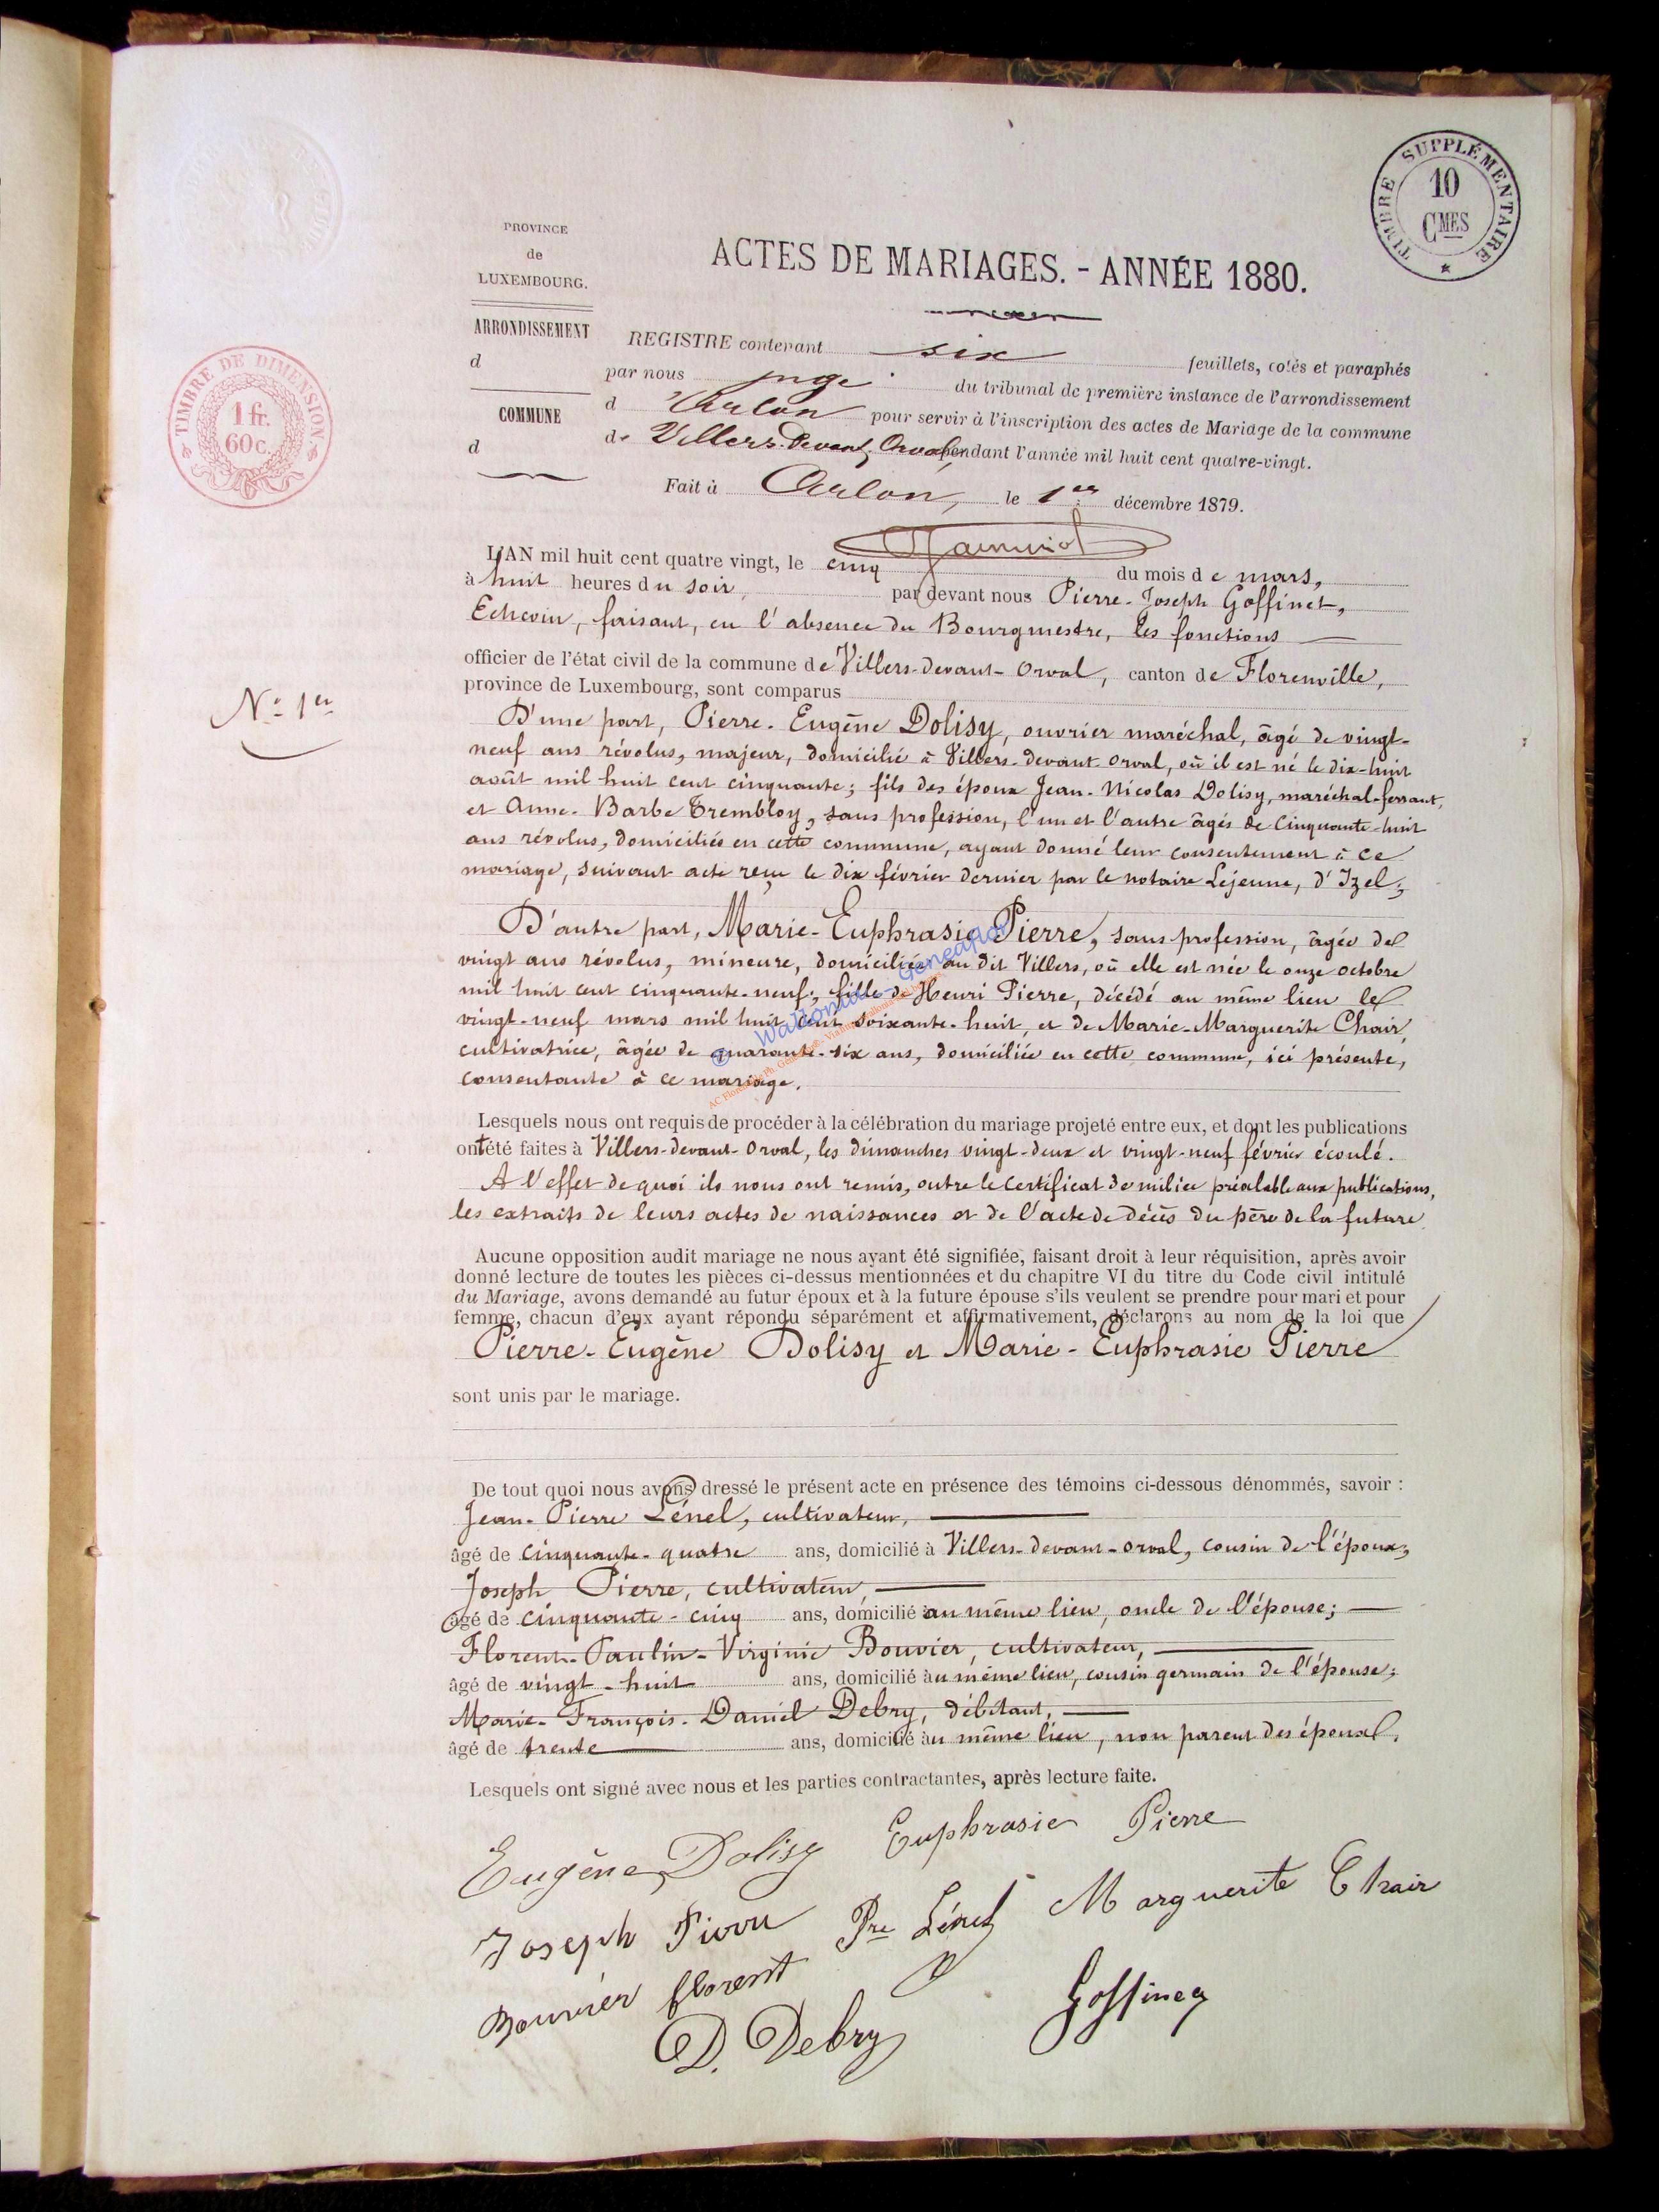 TIMBRE SUPPLÉMENTAIRE
10
CMES
PROVINCE
de
LUXEMBOURG.
ACTES DE MARIAGES. - ANNÉE 1880.
ARRONDISSEMENT
d
COMMUNE
d
TIMBRE DE DIMENSION
1 fr.
60 c.
REGISTRE contenant six feuillets, cotés et paraphés
par nous juge du tribunal de première instance de l'arrondissement
d'Arlon pour servir à l'inscription des actes de Mariage de la commune
de Villers-Devant-Orval, pendant l'année mil huit cent quatre-vingt.
Fait à Arlon, le 1er décembre 1879.
L'AN mil huit cent quatre vingt, le cinq du mois de mars,
à huit heures du soir, par devant nous Pierre-Joseph Goffinet,
Echevin, faisant, en l'absence du Bourgmestre, les fonctions
officier de l'état civil de la commune de Villers-devant-Orval, canton de Florenville,
province de Luxembourg, sont comparus
No 1er
D'une part, Pierre-Eugène Dolisy, ouvrier maréchal, âgé de vingt-
neuf ans révolus, majeur, domicilié à Villers-devant-Orval, où il est né le dix-huit
août mil huit cent cinquante; fils des époux Jean-Nicolas Dolisy, maréchal-ferrant,
et Anne-Barbe Trembloy, sans profession, l'un et l'autre âgés de cinquante-huit
ans révolus, domiciliés en cette commune, ayant donné leur consentement à ce
mariage, suivant acte reçu le dix février dernier par le notaire Lejeune, d'Izel;
D'autre part, Marie-Euphrasie Pierre, sans profession, âgée de
vingt ans révolus, mineure, domiciliée au dit Villers, où elle est née le onze octobre
mil huit cent cinquante-neuf; fille de Henri Pierre, décédé au même lieu le
vingt-neuf mars mil huit cent soixante-huit, et de Marie-Marguerite Chair,
cultivatrice, âgée de quarante-six ans, domiciliée en cette commune, ici présente,
consentante à ce mariage.
Lesquels nous ont requis de procéder à la célébration du mariage projeté entre eux, et dont les publications
ont été faites à Villers-devant-Orval, les dimanches vingt-deux et vingt-neuf février écoulé.
A l'effet de quoi ils nous ont remis, outre le certificat de milice préalable aux publications,
les extraits de leurs actes de naissances et de l'acte de décès du père de la future
Aucune opposition audit mariage ne nous ayant été signifiée, faisant droit à leur réquisition, après avoir
donné lecture de toutes les pièces ci-dessus mentionnées et du chapitre VI du titre du Code civil intitulé
du Mariage, avons demandé au futur époux et à la future épouse s'ils veulent se prendre pour mari et pour
femme, chacun d'eux ayant répondu séparément et affirmativement, déclarons au nom de la loi que
Pierre-Eugène Dolisy et Marie-Euphrasie Pierre
sont unis par le mariage.
De tout quoi nous avons dressé le présent acte en présence des témoins ci-dessous dénommés, savoir :
Jean-Pierre Lénel, cultivateur,
âgé de cinquante-quatre ans, domicilié à Villers-devant-Orval, cousin de l'époux;
Joseph Pierre, cultivateur,
âgé de cinquante-cinq ans, domicilié au même lieu, oncle de l'épouse;
Florent-Paulin-Virginie Bouvier, cultivateur,
âgé de vingt-huit ans, domicilié au même lieu, cousin germain de l'épouse;
Marie-François-Daniel Debry, débitant,
âgé de trente ans, domicilié au même lieu, non parent des époux.
Lesquels ont signé avec nous et les parties contractantes, après lecture faite.
Eugène Dolisy Euphrasie Pierre
Joseph Pierre Pre Lénel Marguerite Chair
Bouvier florent
D. Debry Goffinet